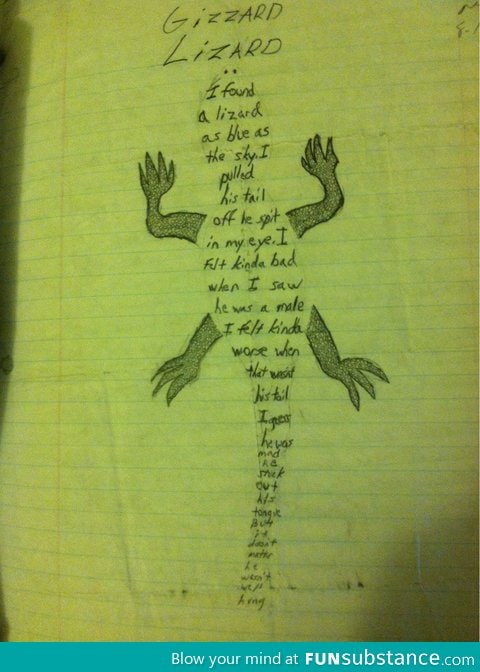 GIZZARD
LIZARD
I found
a lizard
as blue as
the sky. I
pulled
his tail
off he spit
in my eye. I
Felt kinda bad
when I saw
he was a male
I felt kinda
worse when
that wasnt
his tail
I guess
he was
mad
he
stuck
out
his
tongue
But
it
doesn't
mater
he
wasn't
well
hung
Blow your mind at FUNsubstance.com